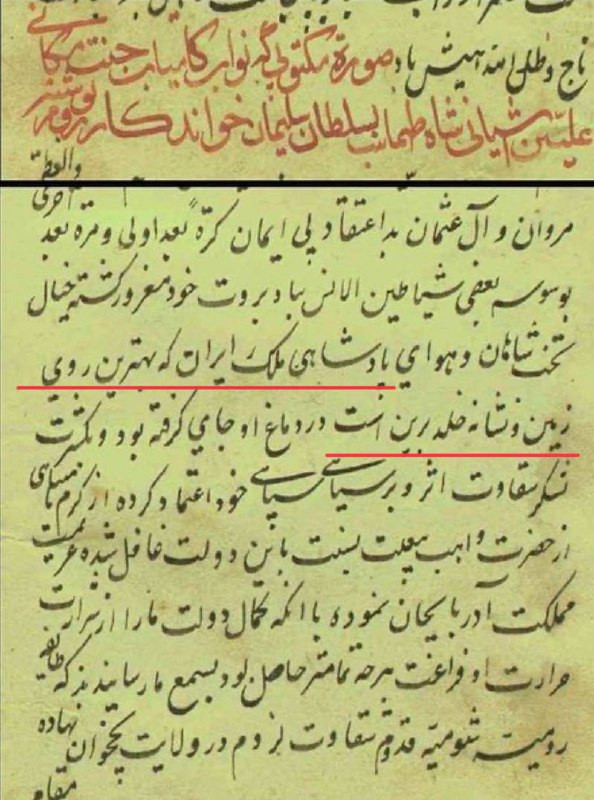 تاج و ظل الله همیش باد صورة مکتوبی که نواب کامیاب جنت مکانی
علیین آشیانی شاه طهماسب بسلطان سلیمان خواندکار روم
مروان و آل عثمان بد اعتقاد بی ایمان کرة بعد اولی و مرة بعد اخری
بوسوسه بعضی شیاطین الانس بباد بروت خود مغرور کشته خیال
تخت شاهان و هوای پادشاهی ملک ایران که بهترین روی
زمین و نشانه خلد برین است در دماغ او جای کرفته بود و بکثرت
لشکر شقاوت اثر و بر سپاهی خود اعتماد کرده از کرم نامتناهی
از حضرت واهب بی منت نسبت باین دولت غافل شده عزیمت
مملکت آذربایجان نموده با انکه کمال دولت ما را از شرارت
حرارت او فراغت هر چه تمامتر حاصل بود بسمع ما رسانیدند که طایفه
رومیه شومیه قدوم شقاوت لزوم در ولایت نخجوان نهاده
مقام